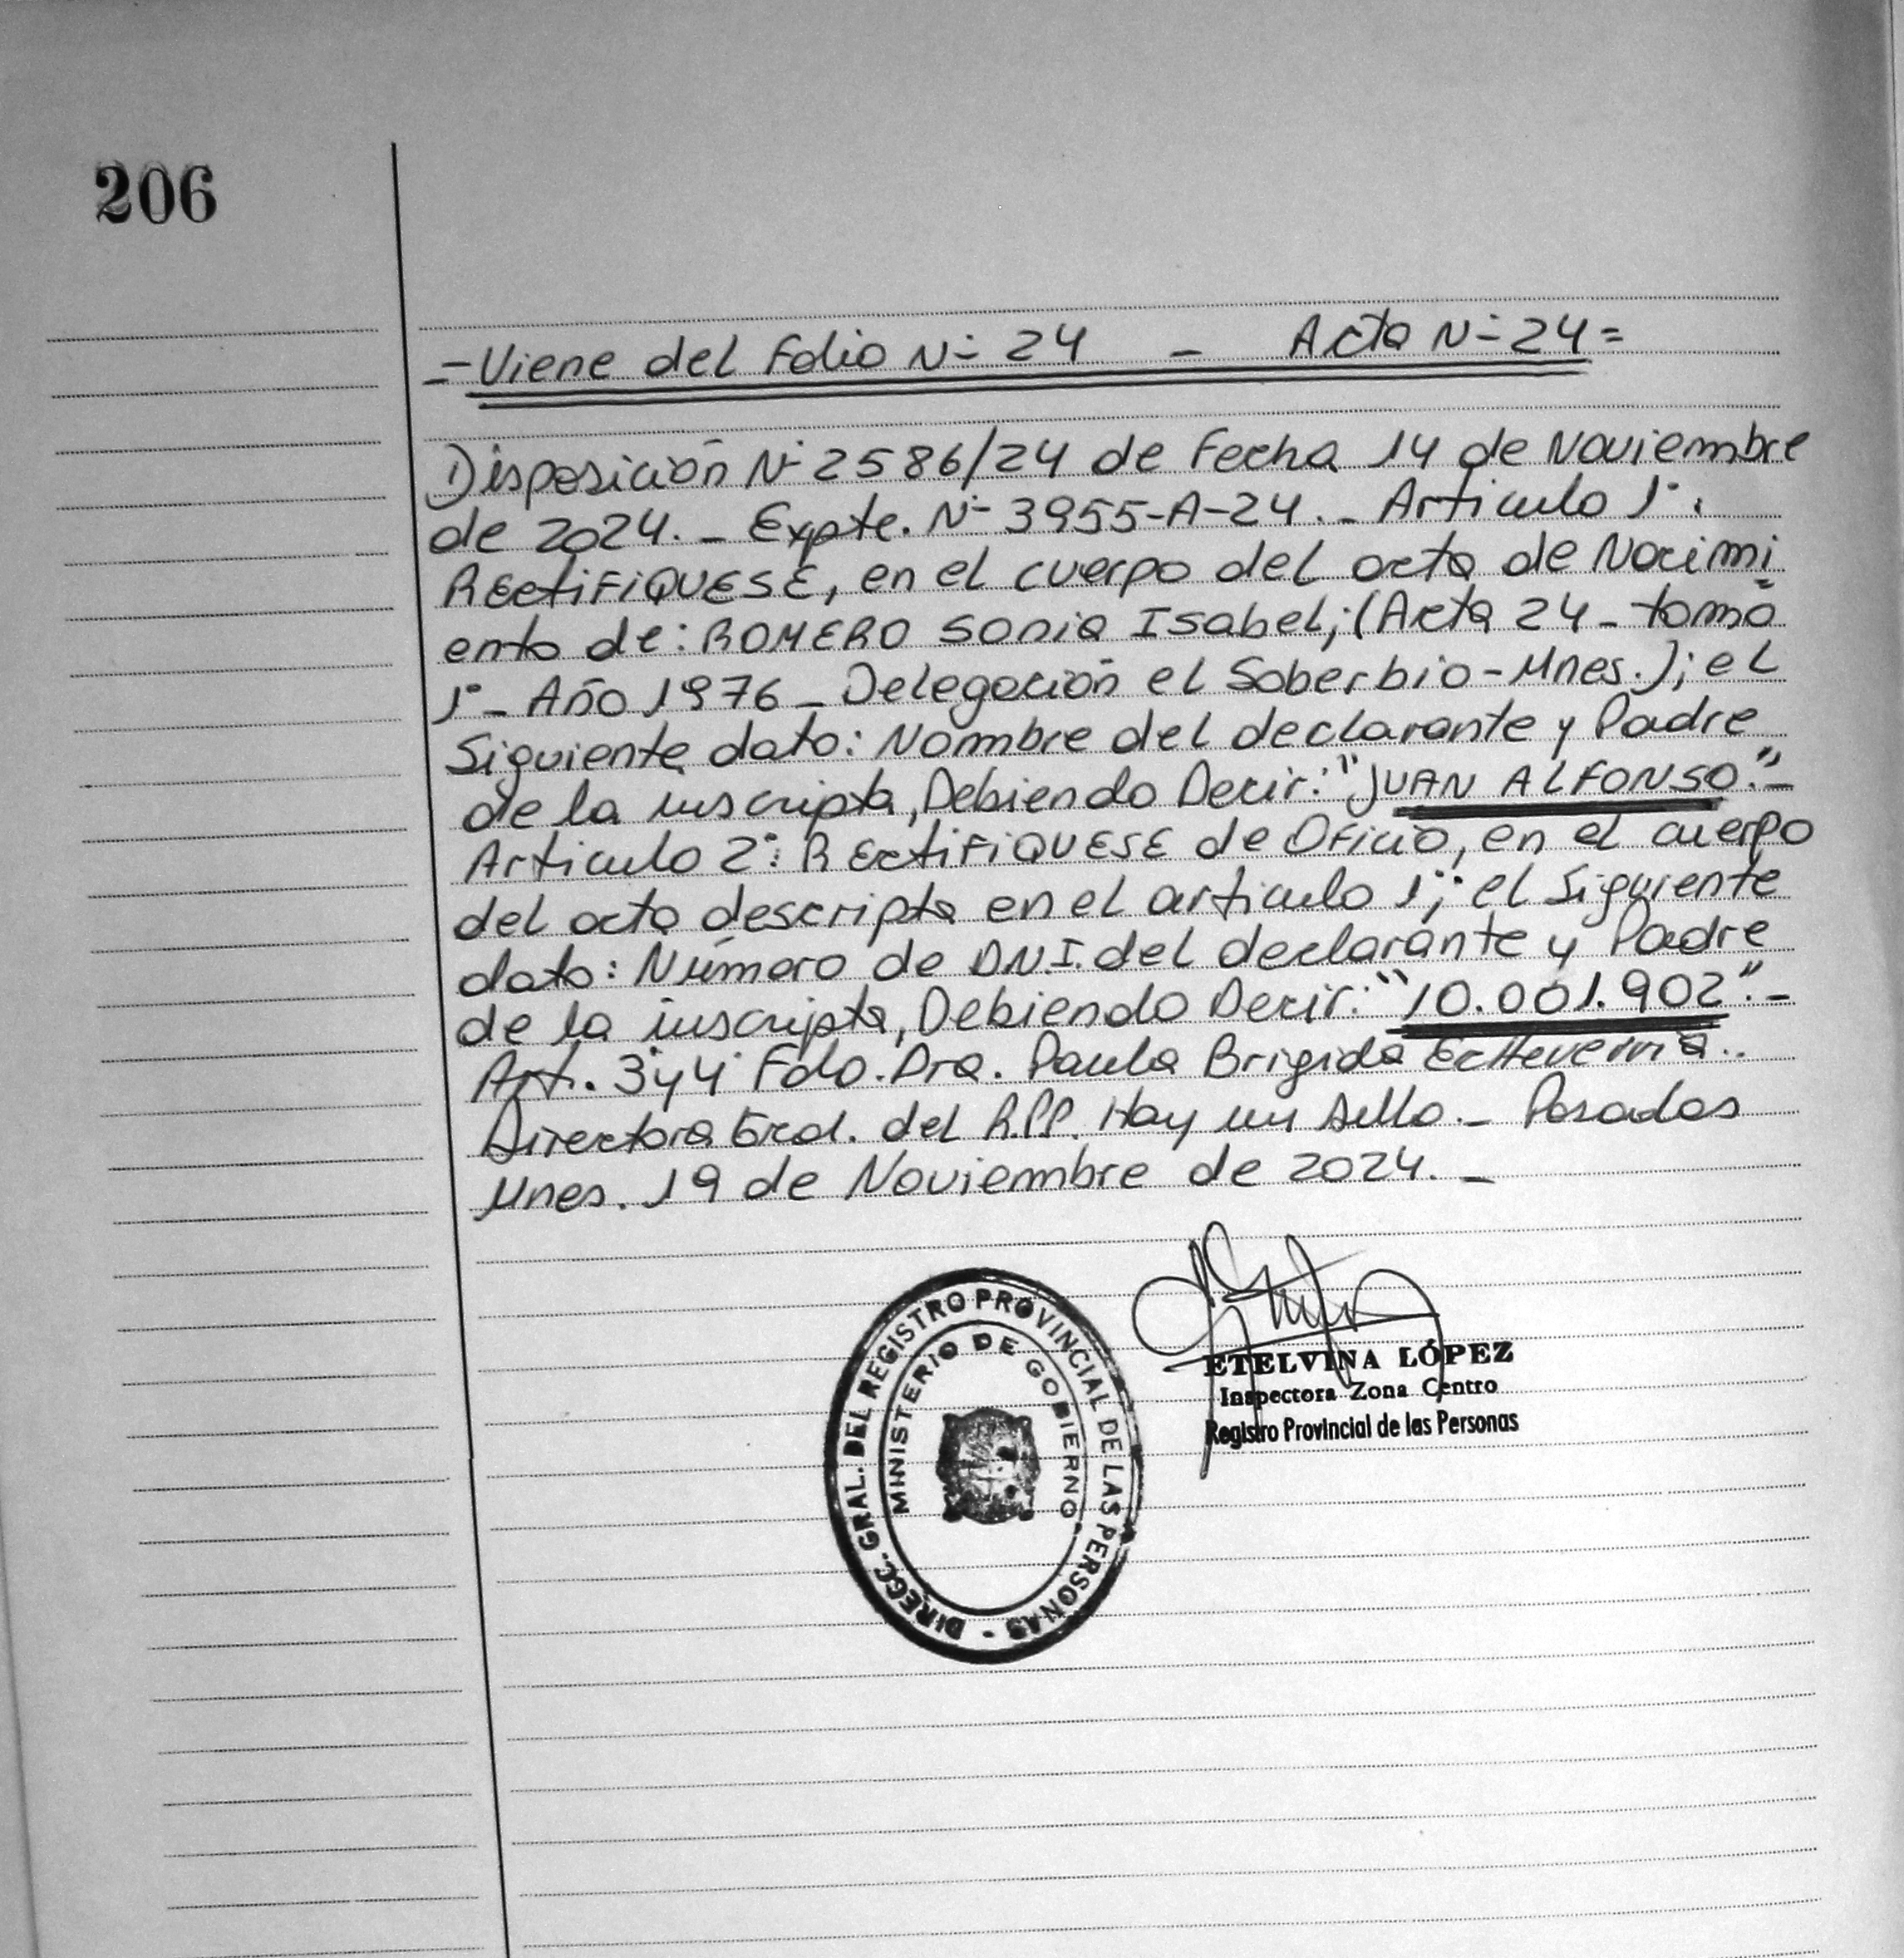 206
=Viene del Folio Nº 24 - Acta Nº 24=
Disposición Nº 2586/24 de Fecha 14 de Noviembre
de 2024.- Expte. Nº 3955-A-24.- Articulo 1º:
RECtiFiQUESE, en el cuerpo del acta de Nacimi
ento de: ROMERO Sonia Isabel; (Acta 24 - tomo
1º- Año 1976 - Delegación el Soberbio-Mnes.); el
Siguiente dato: Nombre del declarante y Padre
de la inscripta, Debiendo Decir: "JUAN ALFONSO".-
Articulo 2º: RECtiFiQUESE de Oficio, en el cuerpo
del acta descripta en el articulo 1º; el Siguiente
dato: Número de D.N.I. del declarante y Padre
de la inscripta, Debiendo Decir: "10.001.902".-
Art. 3º y 4º Fdo. Dra. Paula Brigida Echeverria..
Directora Gral. del R.P.P. Hay un sello.- Posadas
Mnes. 19 de Noviembre de 2024.-
DIRECC. GRAL. DEL REGISTRO PROVINCIAL DE LAS PERSONAS -
MINISTERIO DE GOBIERNO
ETELVINA LÓPEZ
Inspectora Zona Centro
Registro Provincial de las Personas